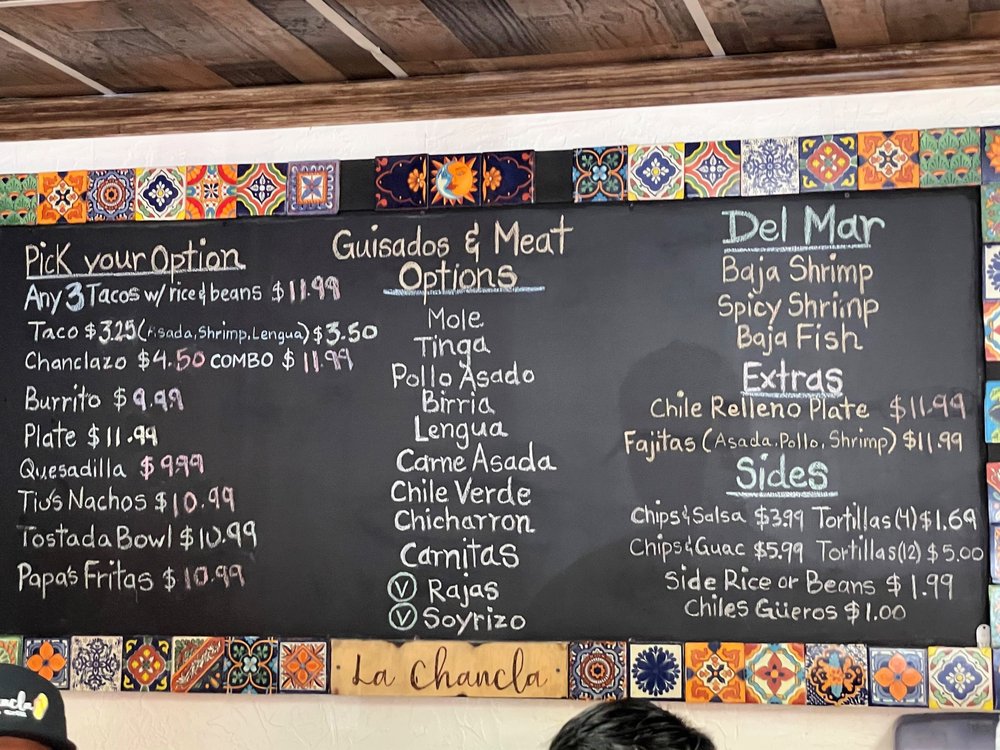 Pick your Option
Any 3 Tacos w/ rice & beans $11.99
Taco $3.25 (Asada, Shrimp, Lengua) $3.50
Chanclazo $4.50 COMBO $11.99
Burrito $9.99
Plate $11.99
Quesadilla $9.99
Tio's Nachos $10.99
Tostada Bowl $10.99
Papa's Fritas $10.99
Guisados & Meat
Options
Mole
Tinga
Pollo Asado
Birria
Lengua
Carne Asada
Chile Verde
Chicharron
Carnitas
V Rajas
V Soyrizo
Del Mar
Baja Shrimp
Spicy Shrimp
Baja Fish
Extras
Chile Relleno Plate $11.99
Fajitas (Asada, Pollo, Shrimp) $11.99
Sides
Chips & Salsa $3.99 Tortillas (4) $1.69
Chips & Guac $5.99 Tortillas (12) $5.00
Side Rice or Beans $1.99
Chiles Güeros $1.00
La Chancla